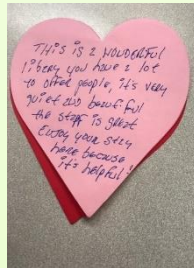 THiS iS a WONDERFUl
libery you have a lot
to offer people, it's very
quiet and beautiful
the staff is great
Enjoy your stay
here because
it's helpful!